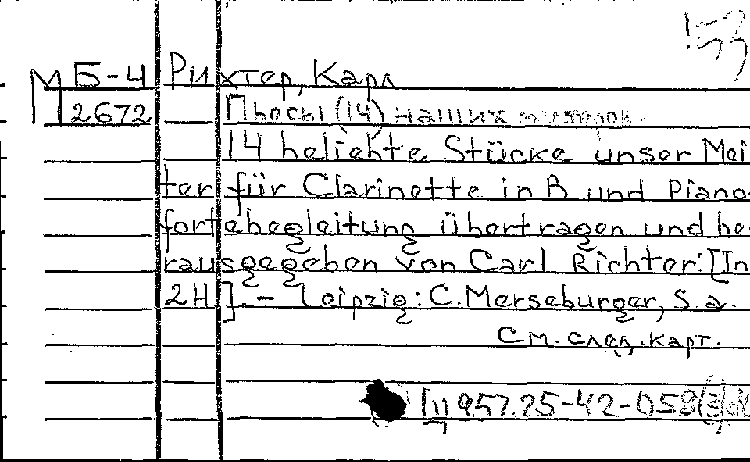 53
М Б-4 Рихтер, Карл
2672 Пьесы (14) наших
14 beliebte Stücke unser Mei
ter für Clarinette in B und Piano-
fortebegleitung übertragen und he-
rausgegeben von Carl Richter. [In
2H]. – Leipzig: C. Merseburger, s.a.
См. след. карт.
[1] 957.25-42-058(3)